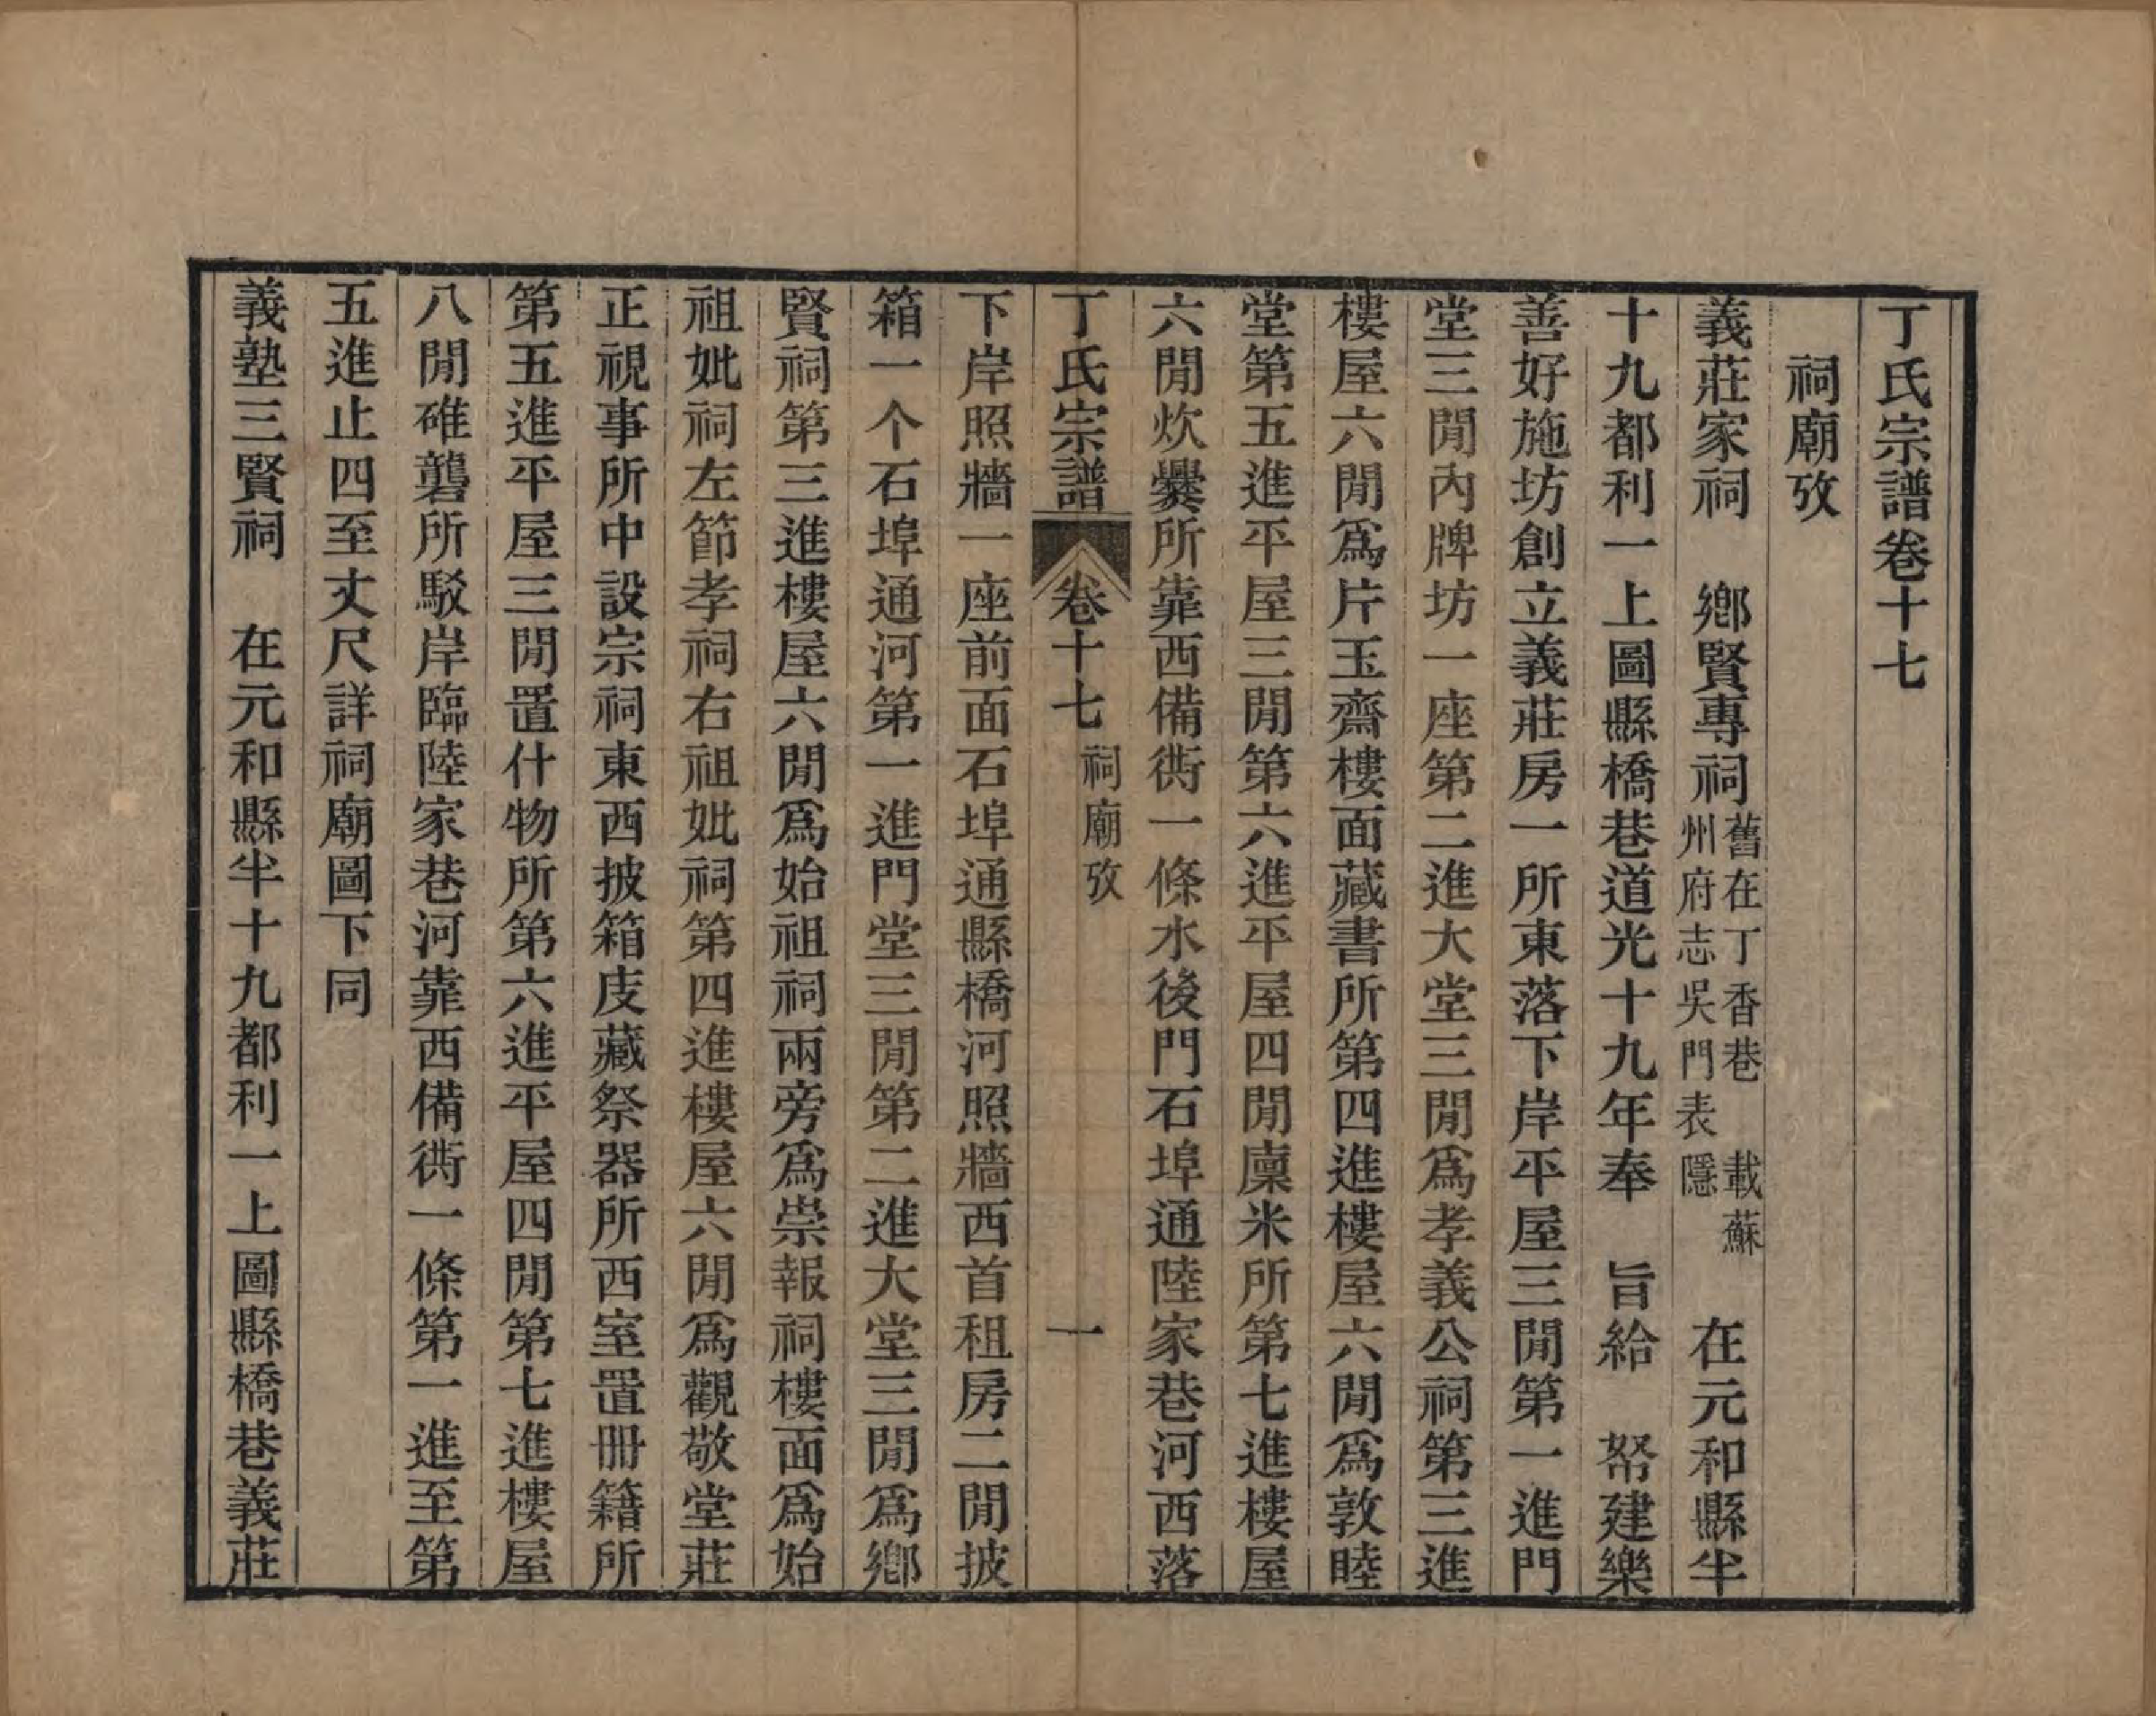 丁氏宗譜卷十七
祠廟攷
義莊家祠　鄉賢專祠舊在丁香巷　載蘇州府志吳門表隱　在元和縣半
十九都利一上圖縣橋巷道光十九年奉　旨給　帑建樂
善好施坊創立義莊房一所東落下岸平屋三閒第一進門
堂三閒內牌坊一座第二進大堂三閒爲孝義公祠第三進
樓屋六閒爲片玉齋樓面藏書所第四進樓屋六閒爲敦睦
堂第五進平屋三閒第六進平屋四閒廩米所第七進樓屋
六閒炊爨所靠西備衖一條水後門石埠通陸家巷河西落
丁氏宗譜　卷十七　祠廟攷　一
下岸照牆一座前面石埠通縣橋河照牆西首租房二閒披
箱一个石埠通河第一進門堂三閒第二進大堂三閒爲鄉
賢祠第三進樓屋六閒爲始祖祠兩旁爲崇報祠樓面爲始
祖妣祠左節孝祠右祖妣祠第四進樓屋六閒爲觀敬堂莊
正視事所中設宗祠東西披箱庋藏祭器所西室置冊籍所
第五進平屋三閒置什物所第六進平屋四閒第七進樓屋
八閒碓礱所駁岸臨陸家巷河靠西備衖一條第一進至第
五進止四至丈尺詳祠廟圖下同
義塾三賢祠　在元和縣半十九都利一上圖縣橋巷義莊